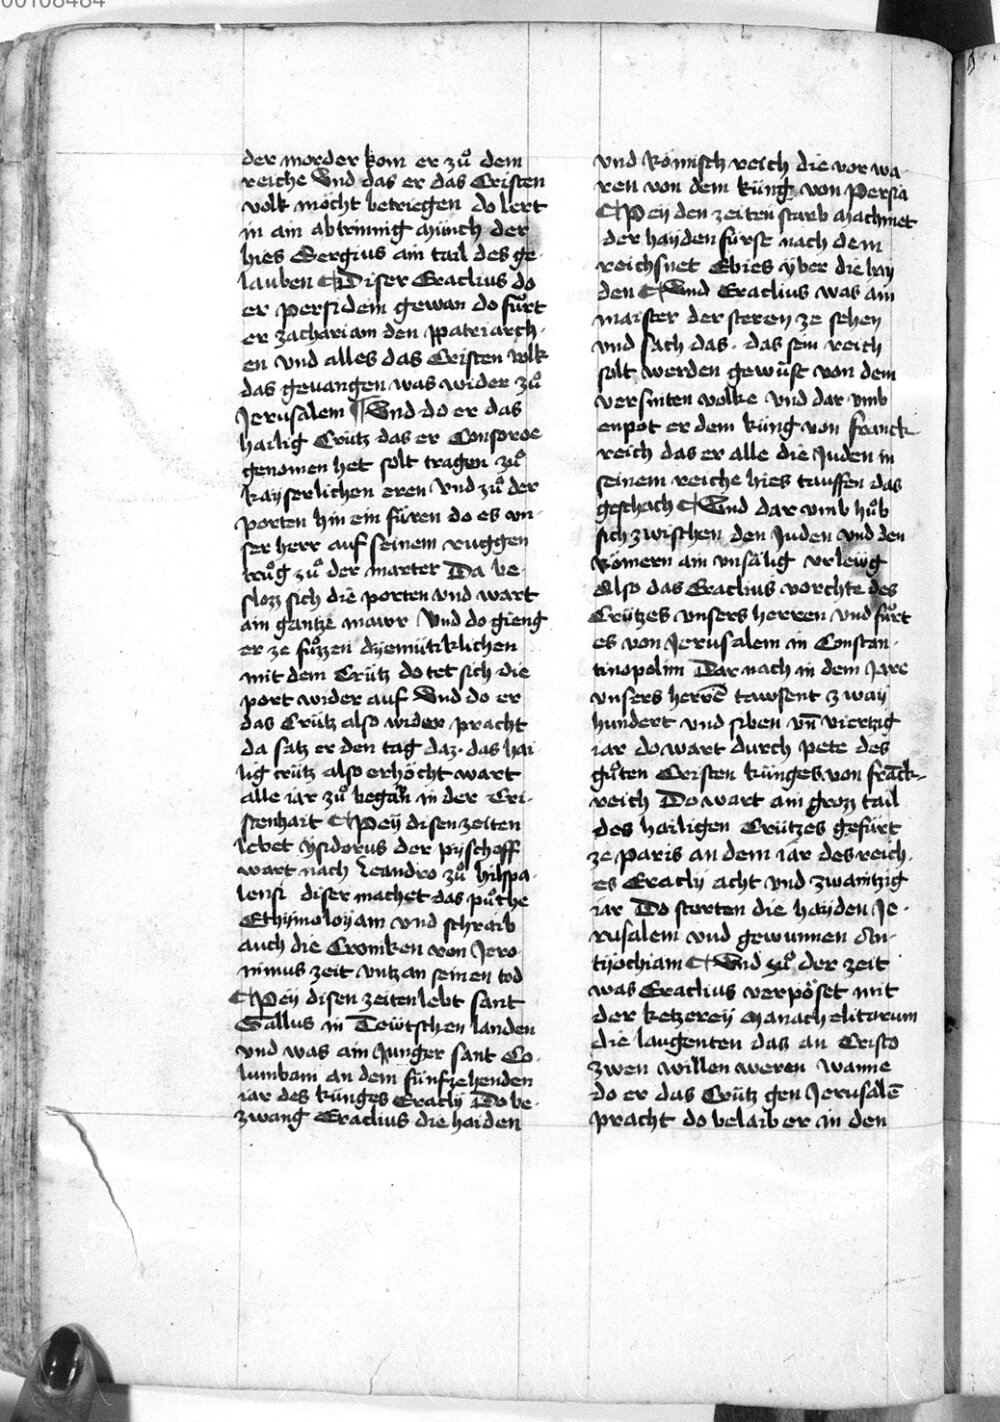 00108484
der morder kom er zuͦ dem
reiche Vnd das er das Cristen
volk möcht betriegen do lert
in ain abtrinnig münch der
hies Sergius ain tail des ge-
lauben ¶ Diser Eraclius do
er persidem gewan do fuͦrt
er zachariam den patriarch-
en vnd alles das Cristen volk
das geuangen was wider zuͦ
Jerusalem ¶ Vnd do er das
hailig Crütz das er Consoroe
genomen het solt tragen zuͦ
kayserlichen eren vnd zuͦ der
porten hin ein füren do es vn-
ser herr auf seinem ruggen
truͦg zuͦ der marter Da be-
slozz sich die porten vnd wart
ain gantze mawr Vnd do gieng
er ze fuͦzzen dyemütiklichen
mit dem Crütz do tet sich die
port wider auf Vnd do er
das Crütz also wider pracht
da satz er den tag daz das hai-
lig crütz also erhöcht wart
alle iar zuͦ began in der Cri-
stenhait ¶ Peÿ disen zeiten
lebet ysidorus der pyschoff
wart nach Leandro zuͦ hilspa-
lensi diser machet das puͦche
Ethymoloyam vnd schraib
auch die Croniken von Jero-
nimus zeit vntz an seinen tod
¶ Peÿ disen zeiten lebt sant
Gallus in Teütschen landen
vnd was ain Junger sant Co-
lumbani an dem fünfzehenden
iar des künges Eraclÿ Do be-
zwang Eraclius die haiden
vnd Römisch reich die vor wa-
ren von dem küng von Persia
¶ Peÿ den zeiten starb Machmet
der hayden fürst nach dem
reichsnet Ebies yber die hay
den ¶ Vnd Eraclius was ain
maister der steren ze sehen
vnd sach das das sein reich
solt werden gewüst von dem
versniten volke vnd dar vmb
enpot er dem küng von franck-
reich das er alle die Juden in
seinem reiche hies tauffen das
geschach ¶ Vnd dar vmb huͦb
sich zwischen den Juden vnd den
römern ain vnsälig vrleüg
Also das Eraclius vorchte des
Crützes vnsers herren vnd fuͦrt
es von Jerusalem in Constan-
tinopolim Dar nach in dem Jare
vnsers herrē tawsent zway
hundert vnd siben vn̄ viertzig
iar do wart durch pete des
guͦten Cristen künges von franck-
reich Do wart ain grozz tail
des hailigen Crützes gefürt
ze paris an dem iar des reich-
es Eraclÿ acht vnd zwaintzig
iar Do storten die hayden Je-
rusalem vnd gewunnen An-
tyochiam ¶ Vnd zuͦ der zeit
was Eraclius verpöset mit
der ketzereÿ Manachelitarum
die laugenten das an Cristo
zwen willen weren wanne
do er das Crütz gen Jerusalē
pracht do belaib er in den